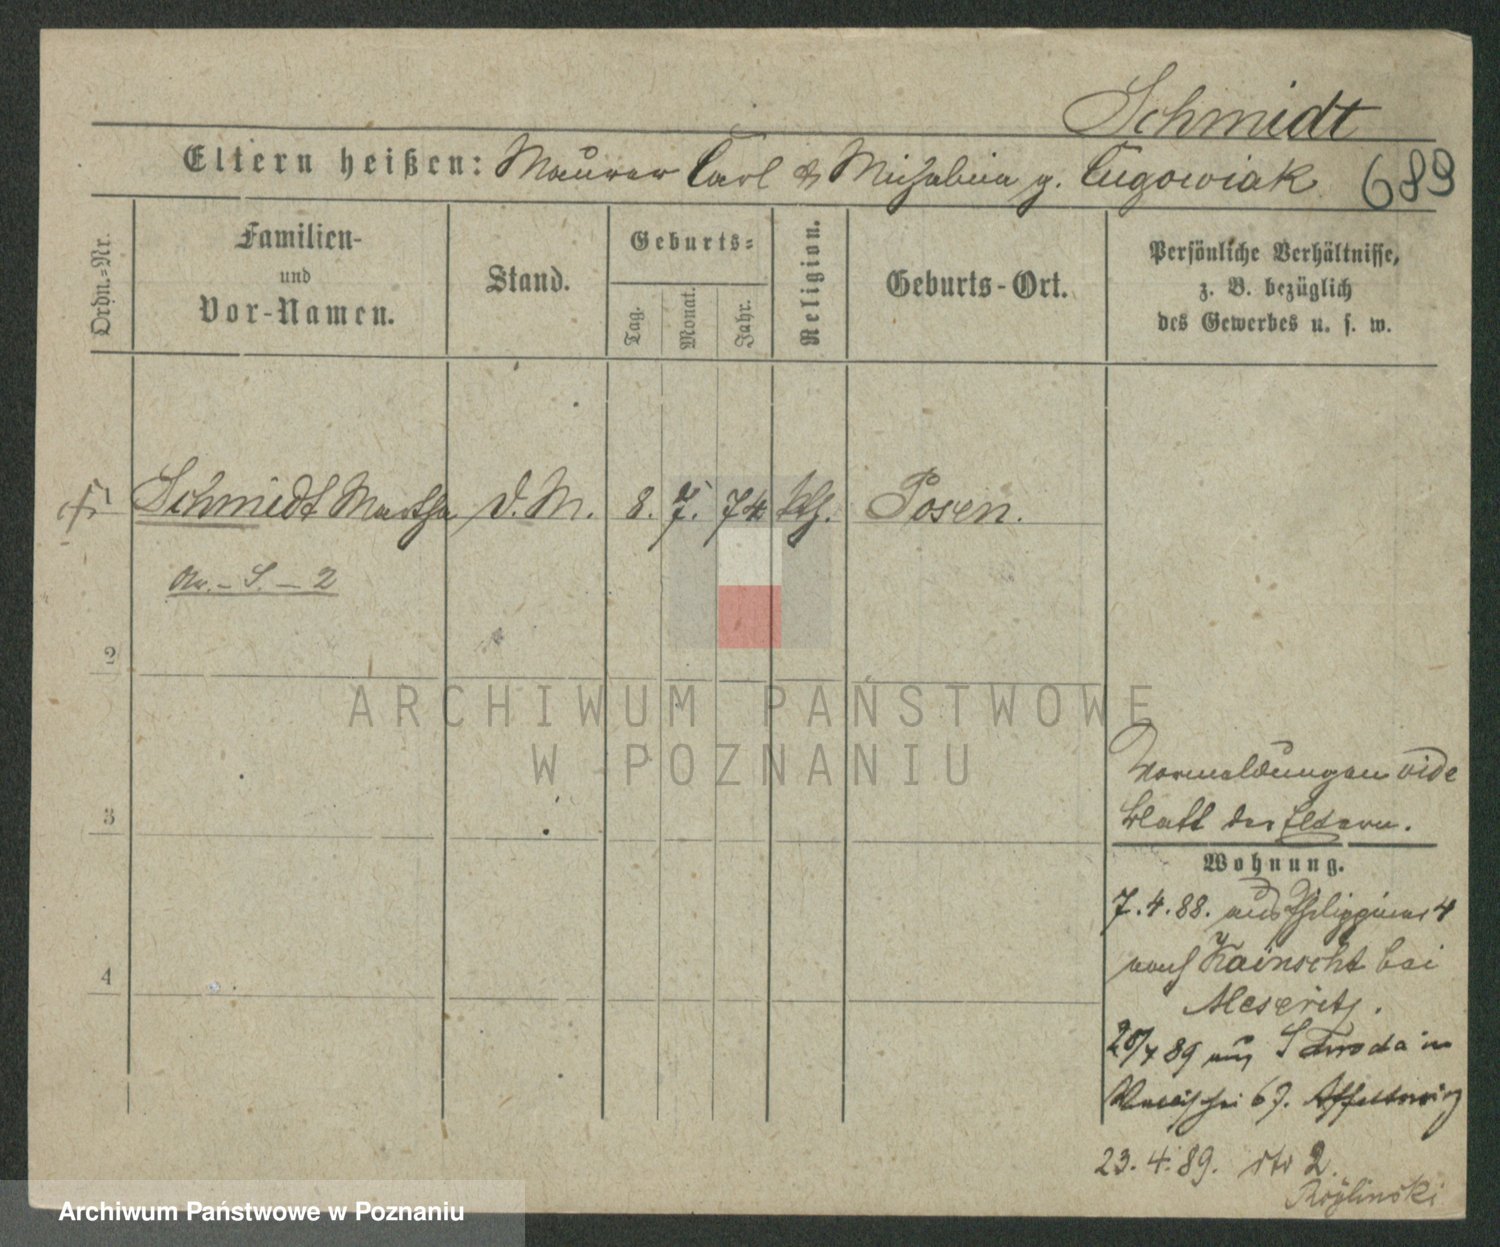 Schmidt
Eltern heißen: Maurer Carl & Michalina g. Cugowiak 689
Ordn.=Nr.
Familien-
und
Vor-Namen.
Stand.
Geburts=
Tag.
Monat.
Jahr.
Religion.
Geburts-Ort.
Persönliche Verhältnisse,
z. B. bezüglich
des Gewerbes u. s. w.
1 Schmidt Martha D. M. 8. 7. 74 kth. Posen.
2
2
3
4
ARCHIWUM PAŃSTWOWE
W POZNANIU
Vormeldungen vide
Blatt der Eltern.
Wohnung.
7. 4. 88. aus 4
nach Kainscht bei
Meseritz.
89 aus Schroda in
Wallischei 67.
23. 4. 89. 2.
Archiwum Państwowe w Poznaniu